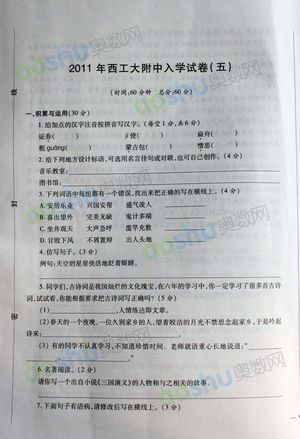 2011年西工大附中入学试卷(五)
(时间:60分钟 总分:60分)
一、积累与运用(30分)
1.给加点的汉字注音按拼音写汉字。(每空1分,共6分)
证券( ) 颐使( ) 扁舟( )
粗guǎng( ) 蒙古包( ) 憎恶( )
2.给下列地方设计标语,可选用名言佳句或对联,也可自己创作。(4分)
音乐教室:
图书馆:
3.下列词语中每组都有一个错误,找出来把正确的写在横线上。(4分)
A.安居乐业 兴国安帮 盛气凌人
B.喜出望外 完美无缺 鬼计多端
C.坐井观天 大声急呼 滥竽充数
D.甘败下风 不屑置辩 出人头地
4.仿写句子。(3分)
例句:天空的星星快活地眨着眼睛。
5.同学们,古诗词是我国灿烂的文化瑰宝,在六年的学习中,你一定学习了很多首古诗
词,试试看,你能根据要求把古诗词写正确吗?(5分)
(1) ,人情练达即文章。
(2)春天的一个夜晚,一位久别家乡的人,望着皎洁的月光不禁思念起家乡,于是吟
起: ,
(3)有的同学不认真学习,不知道珍惜时间。老师就语重心长地说道:“
6.名著阅读。(2分)
请你写一个出自小说《三国演义》的人物和与之相关的故事。
7.下面句子有语病,请修改后写在横线上。(2分)
线
封
密
aoshu奥数网